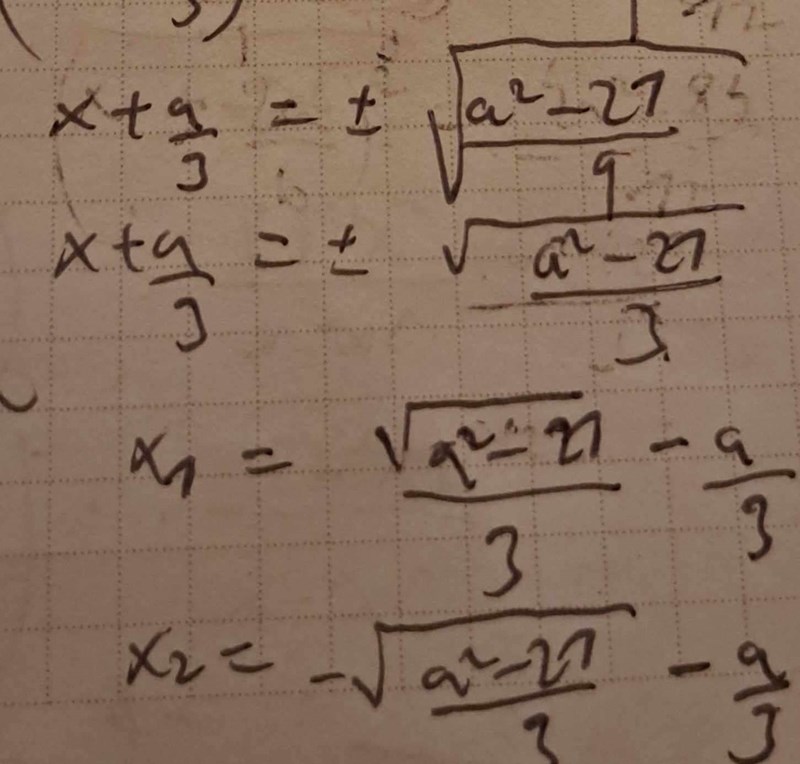 x + a/3 = ± √((a² - 27)/9)
x + a/3 = ± √(a² - 27)/3
x₁ = √(a² - 27)/3 - a/3
x₂ = -√(a² - 27)/3 - a/3